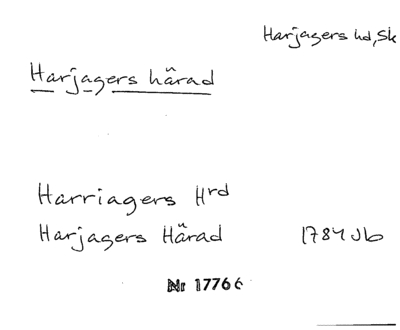 Harjagers hd, Sk
Harjagers härad
Harriagers Hrd
Harjagers Härad 1784 Jb
Nr 17766